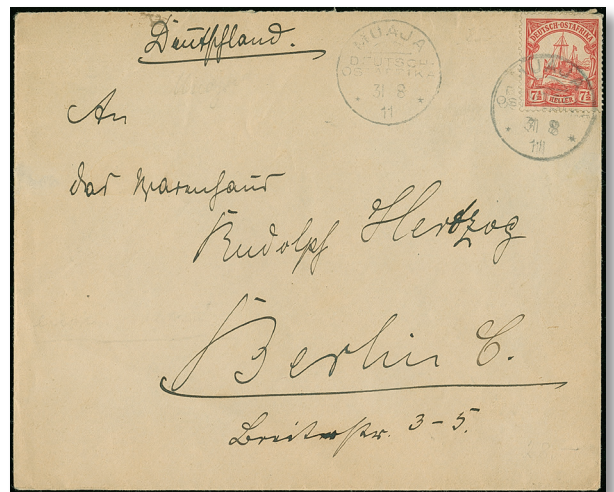 Deutschland.
MUAJA
DEUTSCH-
OSTAFRIKA
31 8
11
DEUTSCH-OSTAFRIKA
7½ HELLER 7½
MUAJA
31 8
11
An
das Warenhaus
Rudolph Hertzog
Berlin C.
Breitestr. 3-5.